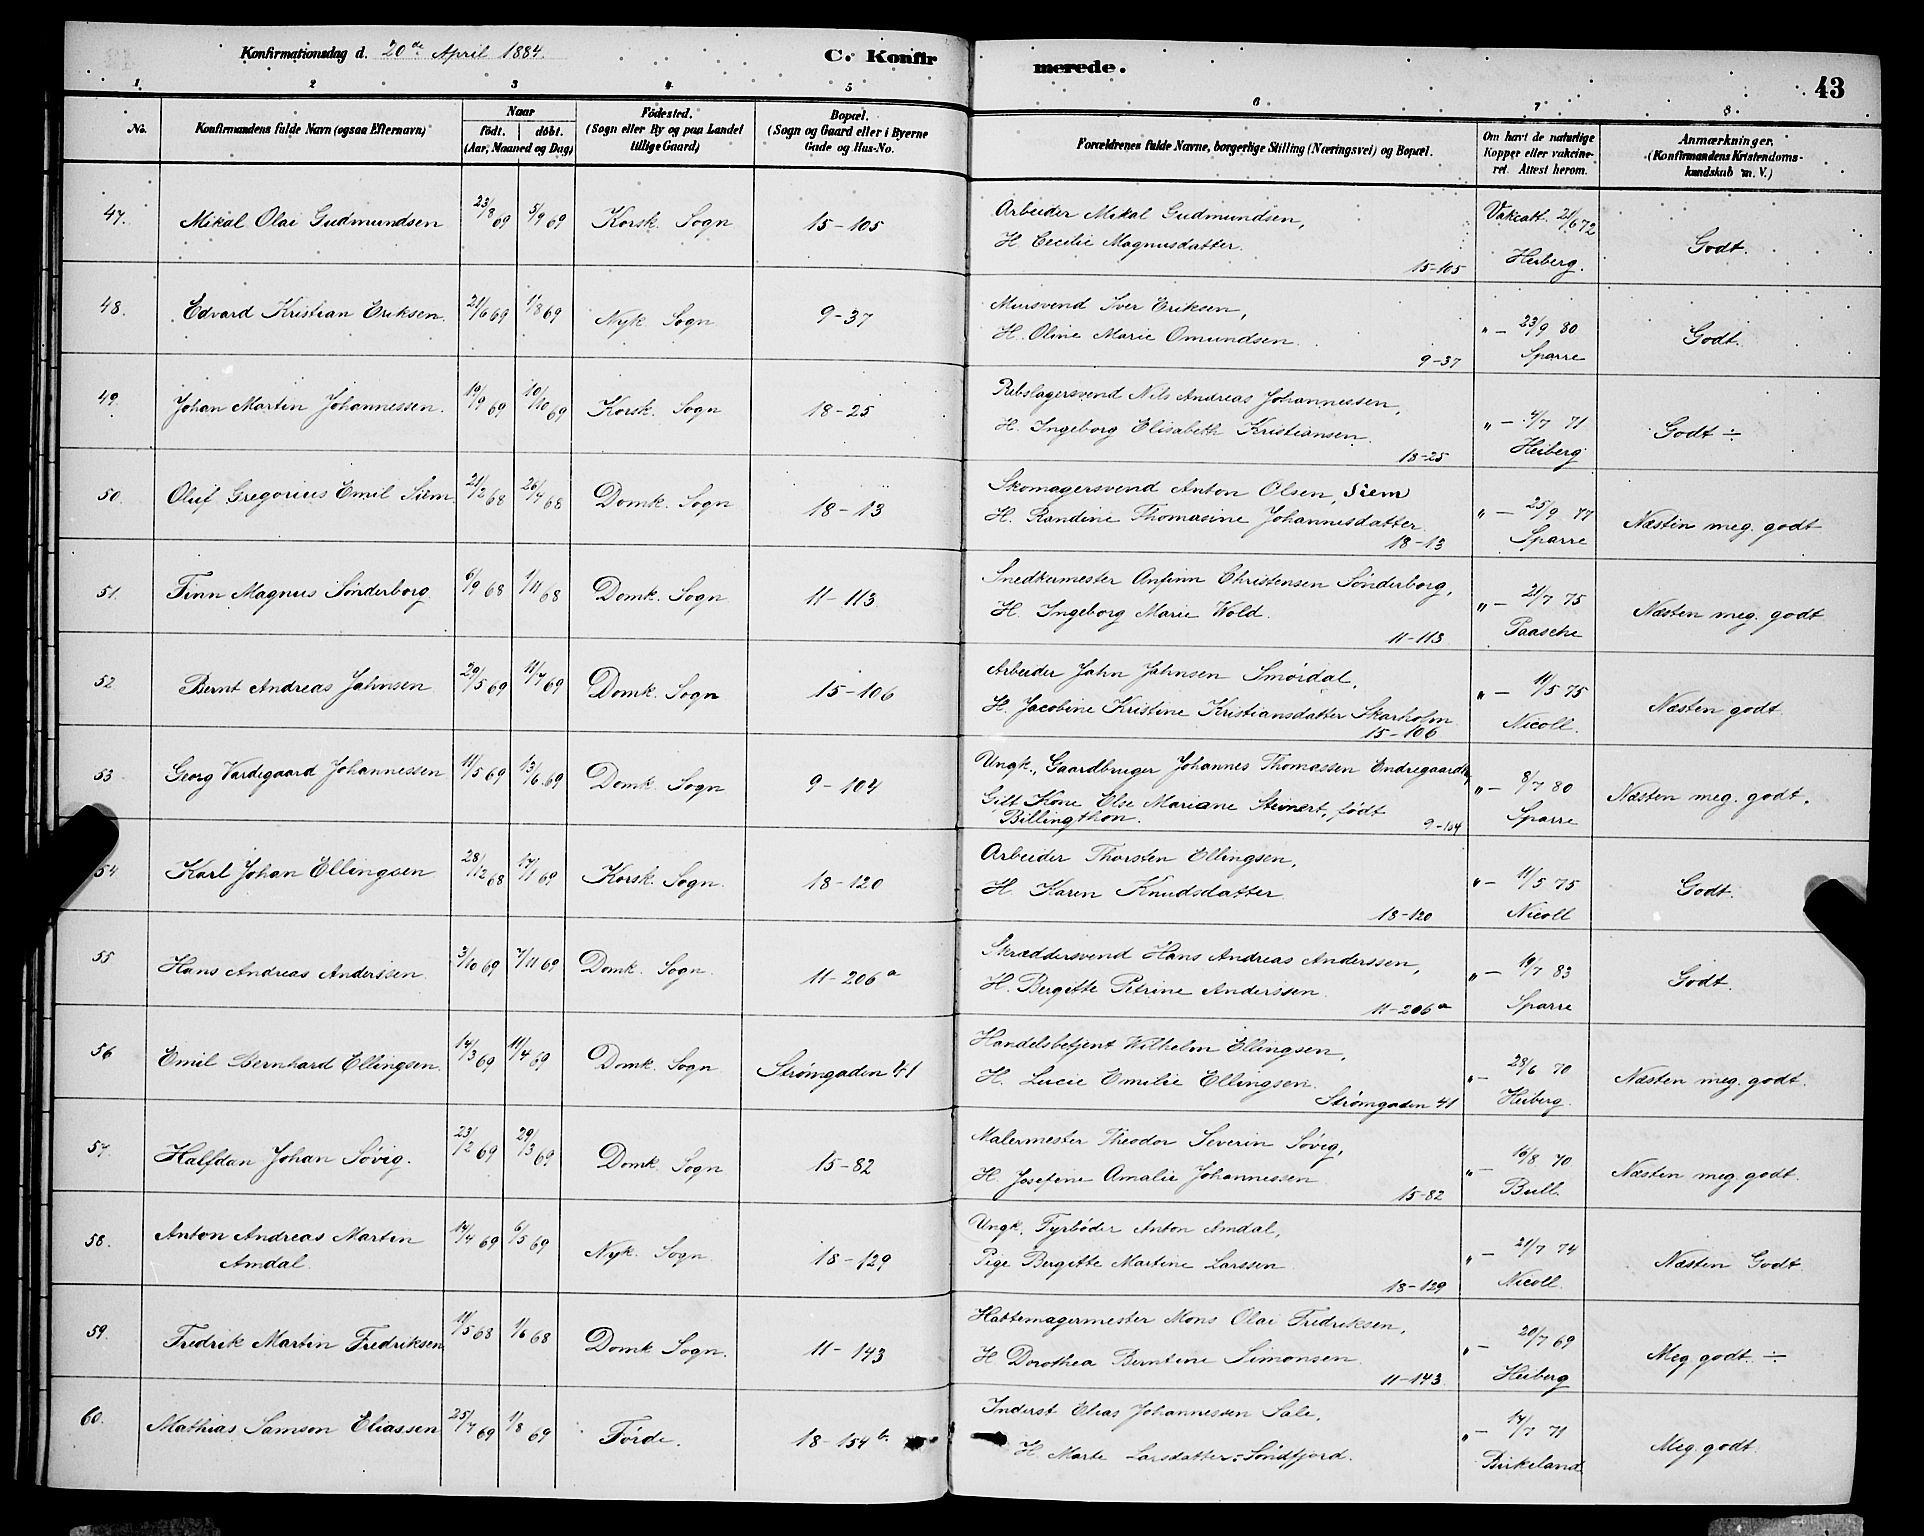 Konfirmationsdag d. 20de April 1884.
C. Konfirmerede.
43
1 2 3 4 5 6 7 8
No.
Konfirmandens fulde Navn (ogsaa Efternavn)
Naar
födt. döbt.
(Aar, Maaned og Dag)
Födested.
(Sogn eller By og paa Landet
tillige Gaard)
Bopæl.
(Sogn og Gaard eller i Byerne
Gade og Hus-No.
Forældrenes fulde Navne, borgerlige Stilling (Næringsvei) og Bopæl.
Om havt de naturlige
Kopper eller vakcine-
ret. Attest herom.
Anmærkninger.
(Konfirmandens Kristendoms-
kundskab m. V.)
47. Mikal Olai Gudmundsen 23/8 69 5/9 69 Korsk. Sogn 15-105
Arbeider Mikal Gudmundsen,
H. Cecilie Magnusdatter.
15-105
Vakcatt. 21/6 72
Heiberg.
Godt.
48. Edvard Kristian Eriksen. 21/6 69 1/8 69 Nyk. Sogn 9-37
Mursvend Iver Eriksen,
H. Oline Marie Omundsen.
9-37
" — 23/9 80
Sparre
Godt.
49. Johan Martin Johannessen. 19/9 69 10/10 69 Korsk. Sogn 18-25
Rebslagersvend Nils Andreas Johannessen,
H. Ingeborg Elisabeth Kristiansen.
18-25
" — 4/7 71
Heiberg
Godt ÷
50. Oluf Gregorius Emil Siem 21/2 68 26/4 68 Domk. Sogn 18-13
Skomagersvend Anton Olsen, Siem
H. Randine Thomasine Johannesdatter
18-13
" — 25/9 77
Sparre
Næsten meg. godt
51. Finn Magnus Sønderborg 6/9 68 1/11 68 Domk. Sogn 11-113
Snedkermester Anfinn Christensen Sønderborg,
H. Ingeborg Marie Wold.
11-113
" — 21/7 75
Paasche
Næsten meg. godt
52. Bernt Andreas Jahnsen 29/5 69 11/7 69 Domk. Sogn 15-106
Arbeider Jahn Jahnsen Smørdal,
H. Jacobine Kristine Kristiansdatter Skarholm
15-106
" — 11/5 75
Nicoll.
Næsten godt
53 Georg Vardegaard Johannessen 11/5 69 13/6 69 Domk. Sogn 9-104
Ungk., Gaardbruger Johannes Thomassen Endregaard,
Gift Kone Else Mariane Steinert, født
Billingthon.
9-104
" — 8/7 80
Sparre
Næsten meg. godt.
54 Karl Johan Ellingsen 28/12 68 17/1 69 Korsk. Sogn. 18-120
Arbeider Thorsten Ellingsen,
H. Karen Knudsdatter
18-120
" — 11/5 75
Nicoll
Godt.
55 Hans Andreas Anderssen. 3/10 69 7/11 69 Domk. Sogn. 11-206a
Skræddersvend Hans Andreas Anderssen,
H. Bergitte Petrine Anderssen.
11-206a
" — 19/7 83
Sparre
Godt.
56 Emil Bernhard Ellingsen. 14/3 69 11/4 69 Domk. Sogn Strømgaden 41
Handelsbetjent Wilhelm Ellingsen,
H. Lucie Emilie Ellingsen.
Strømgaden 41
" — 28/6 70
Heiberg.
Næsten meg. godt.
57. Halfdan Johan Søvig. 23/12 69 29/3 69 Domk. Sogn 15-82
Malermester Theodor Severin Søvig,
H. Josefine Amalie Johannessen
15-82
" — 16/8 70
Bull.
Næsten meg. godt.
58. Anton Andreas Martin
Amdal. 14/4 69 6/5 69 Nyk. Sogn 18-129
Ungk. Fyrbøder Anton Amdal,
Pige Bergitte Martine Larssen
18-129
" — 21/7 74
Nicoll.
Næsten Godt
59. Fredrik Martin Fredriksen 11/5 68 1/6 68 Domk Sogn. 11-143
Hattemagermester Mons Olai Fredriksen,
H Dorothea Berntine Simonsen
11-143
" — 20/7 69
Heiberg
Meg godt. ÷
60. Mathias Samson Eliassen 25/7 69 1/8 69 Førde. 18-154b.
Inderst Elias Johannessen Sale,
H Marte Larsdatter, Søndfjord.
" — 17/7 71
Birkeland
Meg. godt.